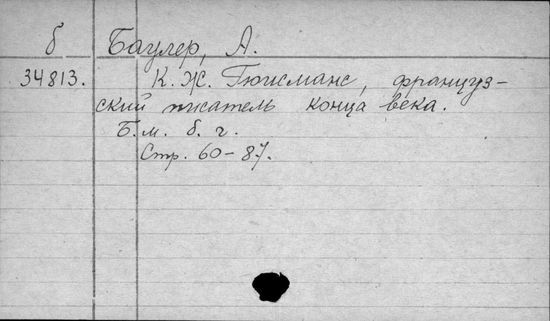 б Баулер, А.
34813. К. Ж. Гюисманс, француз-
ский писатель конца века.
Б. м. б. г.
Стр. 60-87.